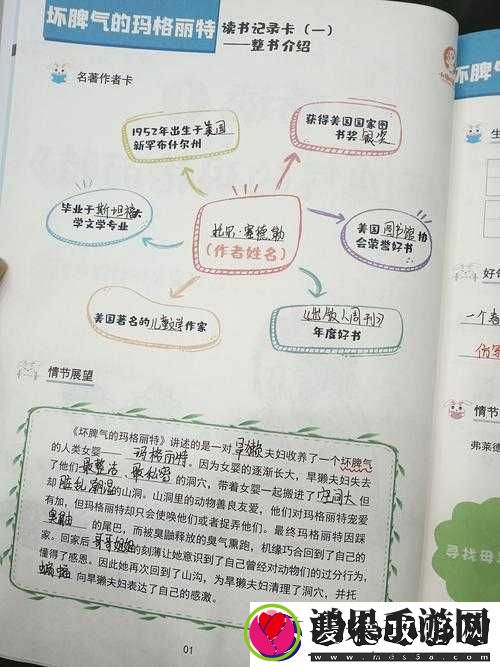 坏脾气的玛格丽特 读书记录卡（一）
——整书介绍
名著作者卡
1952年出生于美国
新罕布什尔州
获得美国国家图
书奖银奖
毕业于斯坦福大
学文学专业
托尔·塞德勒
(作者姓名)
美国图书馆协
会荣誉好书
美国著名的儿童文学作家
《出版人周刊》
年度好书
情节展望
《坏脾气的玛格丽特》讲述的是一对旱獭夫妇收养了一个坏脾气
的人类女婴——玛格丽特。因为女婴的逐渐长大，旱獭夫妇失去
了他们最整洁、最私密的洞穴，带着女婴一起搬进了空间大但
却脏乱潮湿的山洞。山洞里的动物善良友爱，他们对玛格丽特宠爱
有加，但玛格丽特却只会使唤他们或者捉弄他们。最终玛格丽特因踩
臭鼬的尾巴，而被臭鼬释放的臭气熏跑，机缘巧合回到了自己的
家。回家后哥哥姐姐的刻薄让她意识到了自己曾经对动物们的过分行为，
懂得了感恩。因此她再次回到了山沟，为旱獭夫妇清理了洞穴，并托
蝙蝠向旱獭夫妇表达了自己的感激。
01
坏脾
生
好句
一个春
仿写
情节
弗莱德
寻找母
手游网